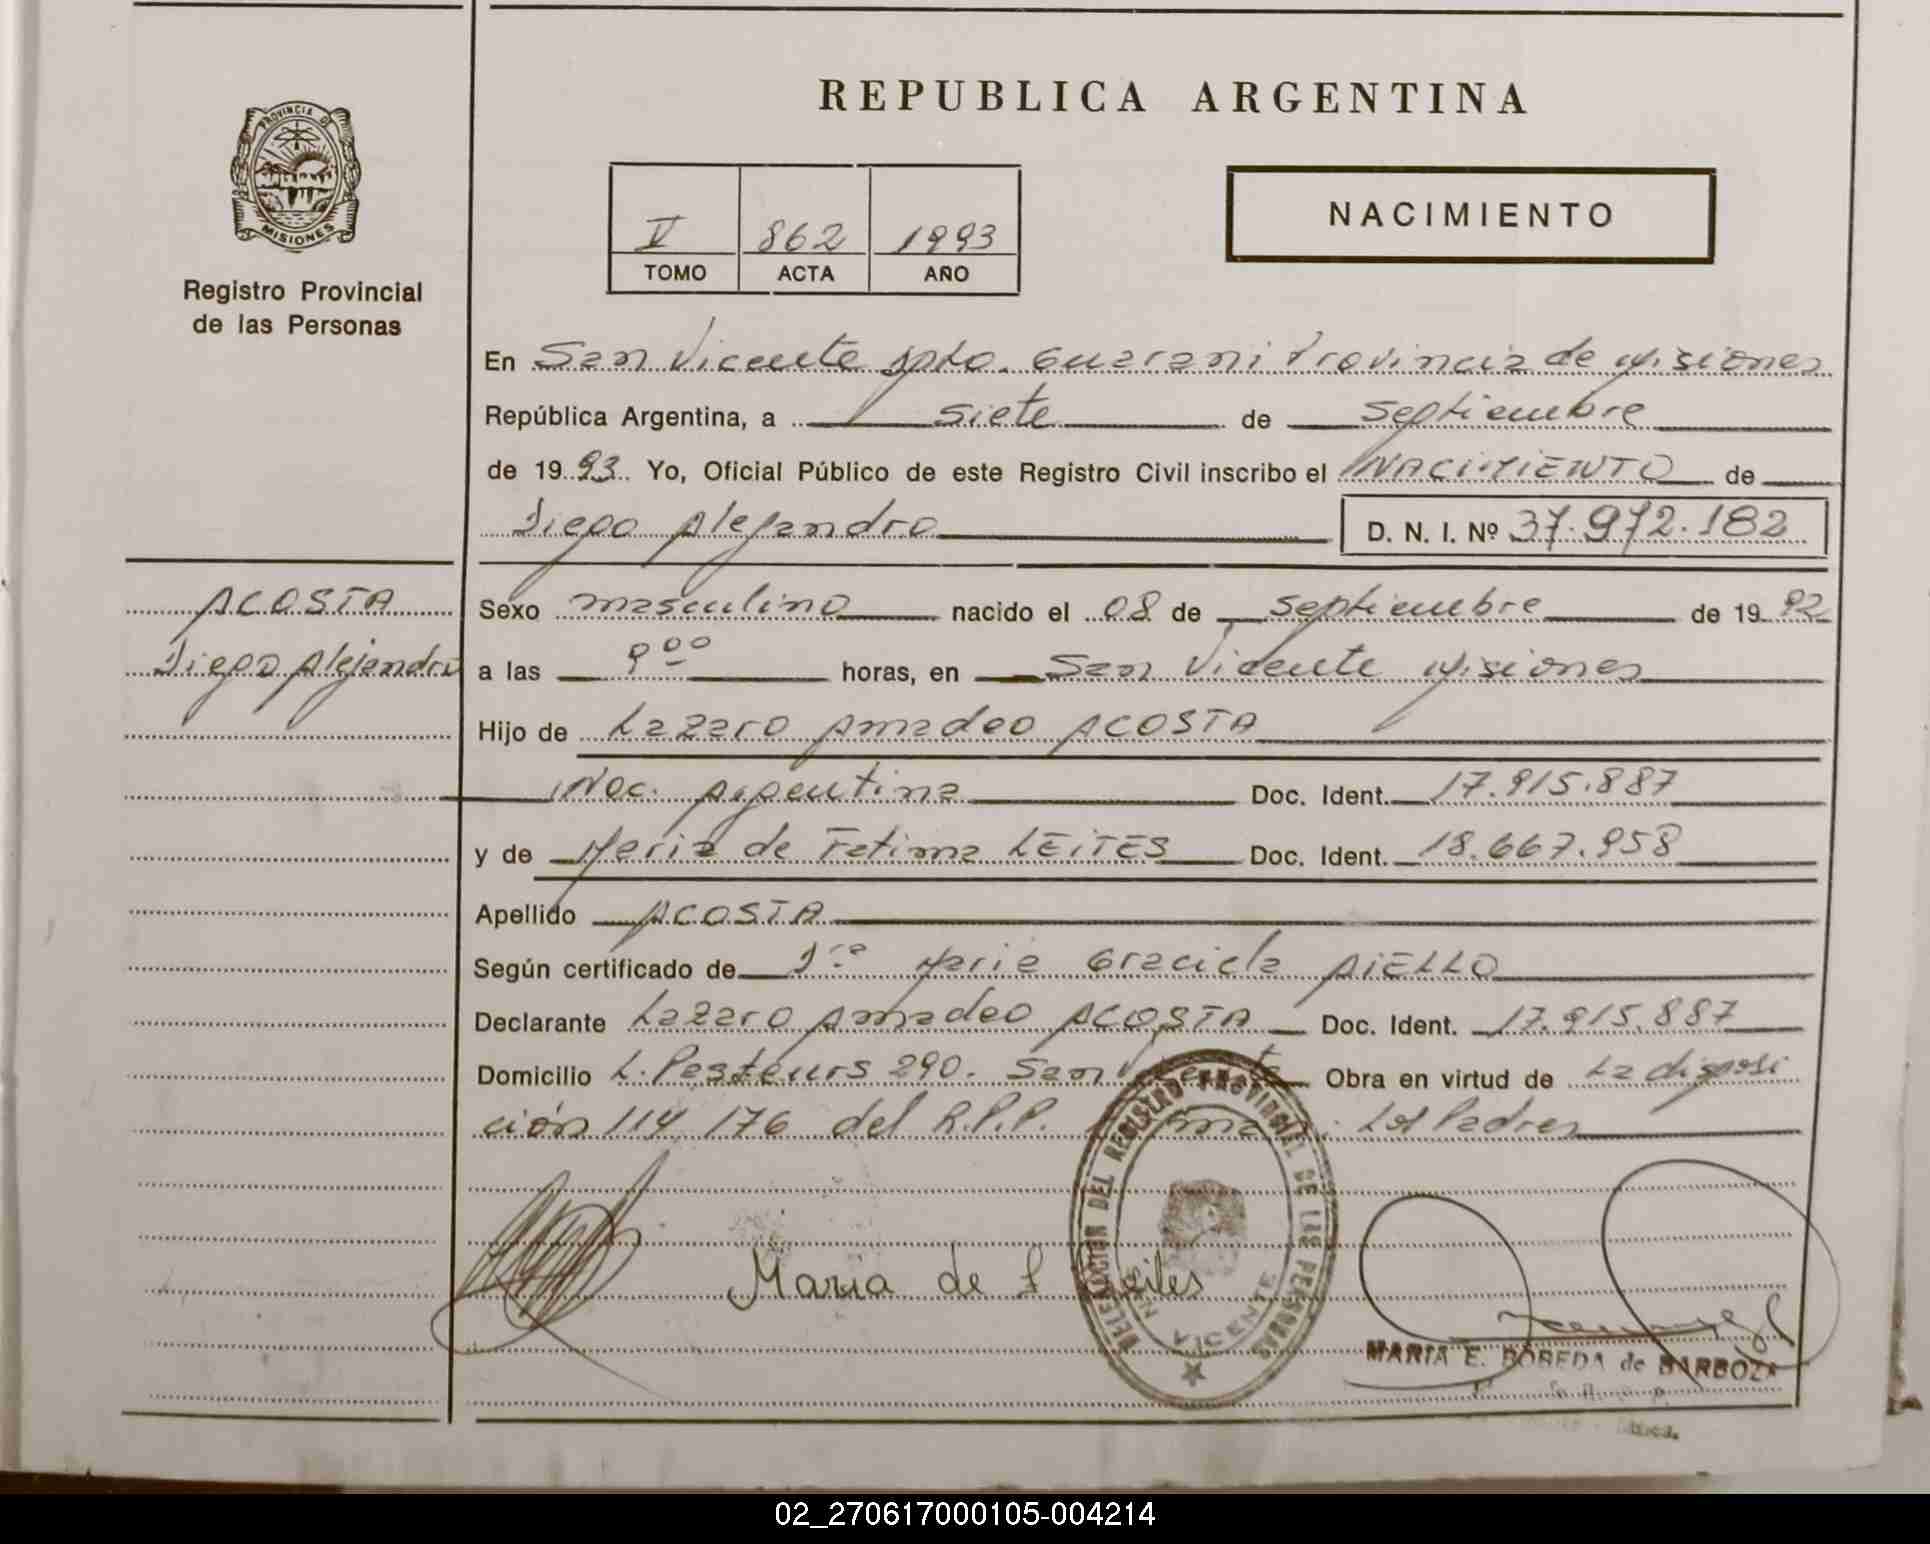 REPUBLICA ARGENTINA
PROVINCIA DE MISIONES
Registro Provincial
de las Personas
V 862 1993
TOMO ACTA AÑO
NACIMIENTO
En San Vicente Dpto. Guarani Provincia de Misiones
República Argentina, a siete de septiembre
de 1993 Yo, Oficial Público de este Registro Civil inscribo el NACIMIENTO de
Diego Alejandro D. N. I. Nº 37.972.182
ACOSTA
Diego Alejandro
Sexo masculino nacido el 08 de septiembre de 1992
a las 9 00 horas, en San Vicente Misiones
Hijo de Lazaro Amadeo ACOSTA
Nac. Argentina Doc. Ident. 17.915.887
y de Maria de Fatima LEITES Doc. Ident. 18.667.958
Apellido ACOSTA
Según certificado de Dra Maria Graciela AIELLO
Declarante Lazaro Amadeo ACOSTA Doc. Ident. 17.915.887
Domicilio L. Pasteurs 290. San Vicente Obra en virtud de La disposi
ción 114/176 del R.P.P. Los Padres
Maria de F Leites
DELEGACION DEL REGISTRO PROVINCIAL DE LAS PERSONAS
SAN VICENTE
MARIA E. BOBEDA de BARBOZA
02_270617000105-004214